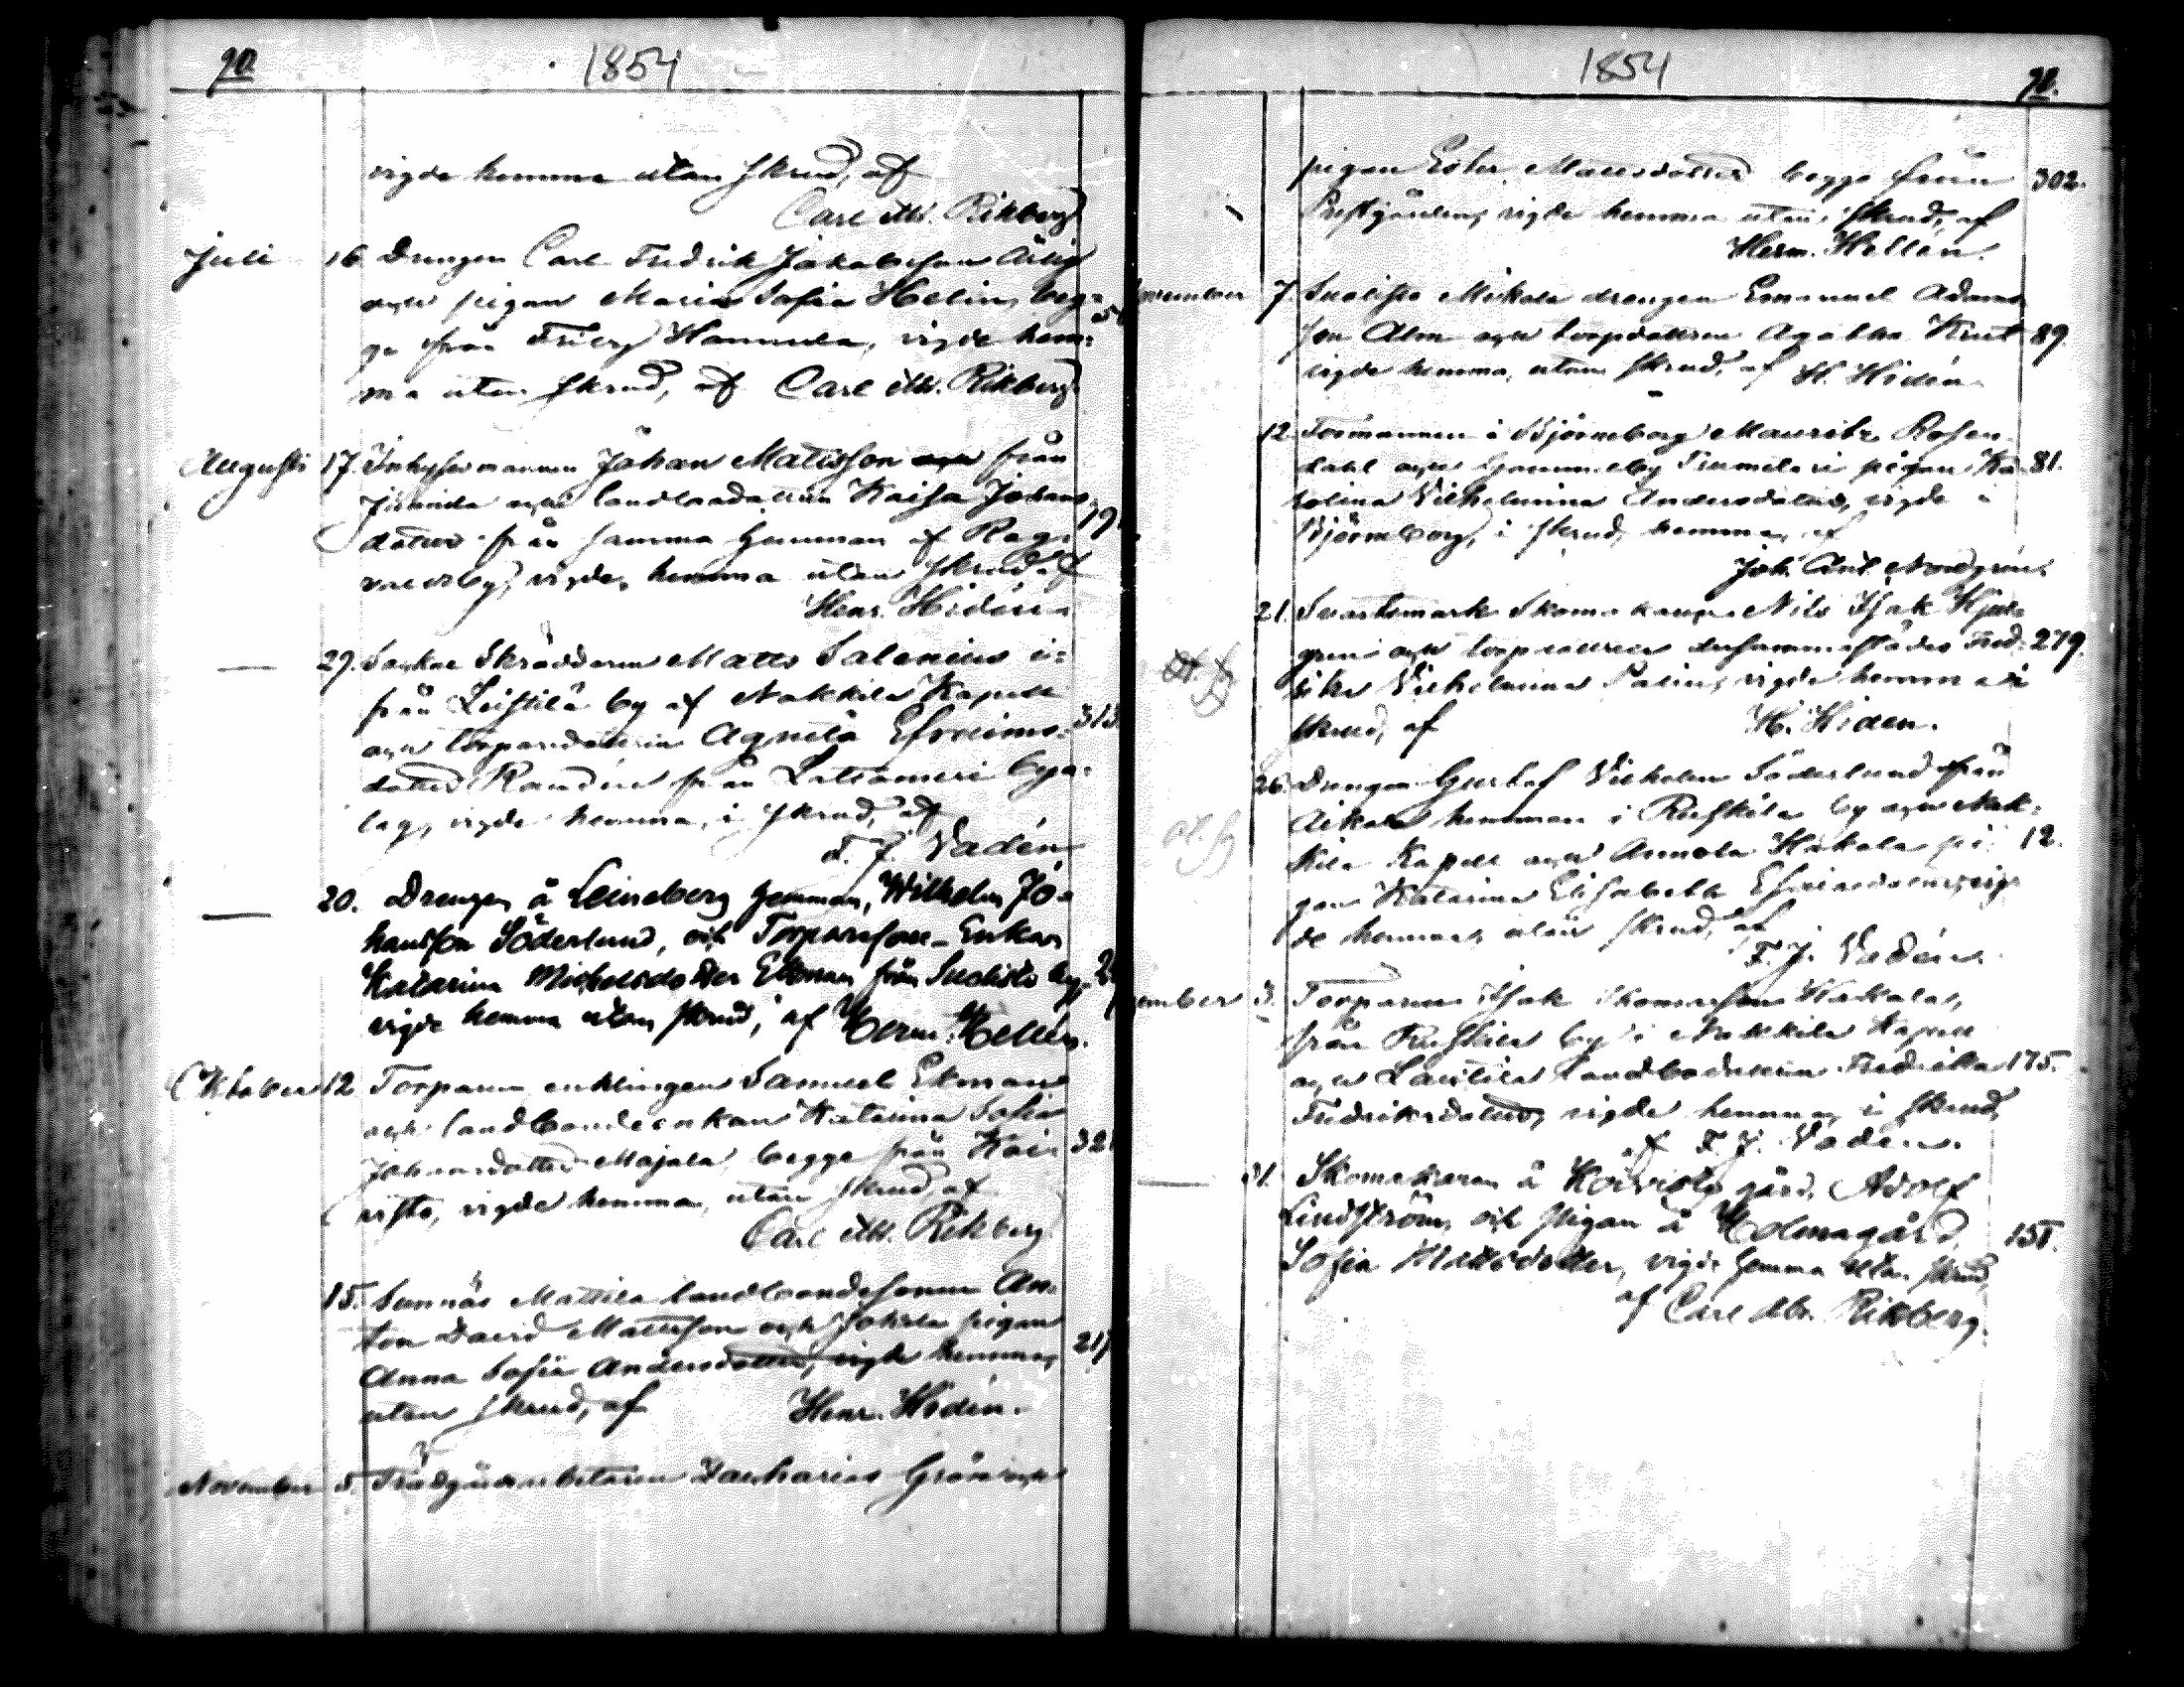 90.
1854
vigde hemma utan skrud, af
Carl M. Rikberg
Juli 16 Drängen Carl Fredrik Jakobsson Ärlig
och pigan Maria Sofia Helin, beg-
ge från Friby Hannula, vigde hem-
ma utan skrud, af Carl M. Rikberg
Augusti 17. Inhysesmannen Johan Matsson från
och landbodottren Kaisa Johans-
dotter från samma hemman af Rag-
valdsby, vigde, hemma utan skrud af
Henr. Hidén
29. Skräddaren Matts Salenius i
från Leistilä by af Nakkila Kapell 313
och torpardottren Agneta Efraims-
dotter Randén från Lattomeri bya-
lag, vigde hemma, i skrud, af
F. J. Vadén
20. Drengen å Leineberg hemman, Wilhelm Jo-
hansson Söderlund, och Torparesson-Enkan
Katarina Michelsdotter Ekman från Suolisto by,
vigde hemma utan skrud, af Herm. Hellén.
Oktober 12 Torparen enklingen Samuel Ekman
och landbondeenkan Katarina Sofia
Johansdotter Majala, begge från Koi- 32
visto, vigde hemma, utan skrud, af
Carl M. Rikberg
15. Sunnäs Mattila landbondesonen An-
ton David Mattsson och Johola pigan
Anna Sofia Andersdotter, vigde hemma, 217
utan skrud, af Henr. Hidén.
November 5. Trädgårdsarbetaren Zacharias Grön och
1854
pigan Ester Mattsdotter begge från 302.
Prestgården, vigde hemma utan skrud, af
Herm. Hellén.
7. Suolisto Mikola drengen Emanuel Adams-
son Alm och torpdottren Agatha Krut 89
vigde hemma, utan skrud, af H. Hidén
12. Formannen i Björneborg Mauritz Rosen-
dahl och pigan Ka- 81.
rolina Vilhelmina Andersdotter, vigde i
Björneborg, i skrud, hemma, af
Joh. Ant. Nordgrén.
21. Svartsmark Skomakaren Nils Isak Kjell-
gren och torpdottren dersammastädes Fred- 279.
rika Vilhelmina Palin, vigde hemma i
skrud, af H. Hiden.
26. Drengen Gustaf Vilhelm Söderlund från
hemman i Ruskila by och Nak-
kila Kapell och Annola Hakola pi- 12.
gan Katarina Elisabeth Efraimsdotter, vig-
de hemma, utan skrud, af
F. J. Vadén.
3. Torparen Isak Thomasson Hakala,
från Ruskila by i Nakkila Kapell
och Lautila landbodottren Fredrika 175.
Fredriksdotter, vigde hemma, i skrud,
af F. J. Vadén.
31. Skomakaren å Koivisto gård, Adolf
Lindström, och pigan å Holmagård, 151.
Sofia Mattsdotter, vigde hemma utan skrud,
af Carl M. Rikberg.